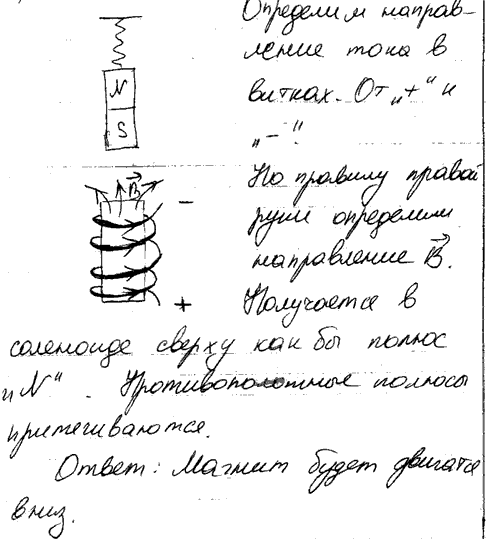 Определим направ-
ление тока в
витках. От „+“ к
„−“.
N
S
По правилу правой
руки определим
направление B⃗.
B⃗
−
+
Получается в
соленоиде сверху как бы полюс
„N“. Противоположные полюсы
притягиваются.
Ответ: Магнит будет двигатся
вниз.